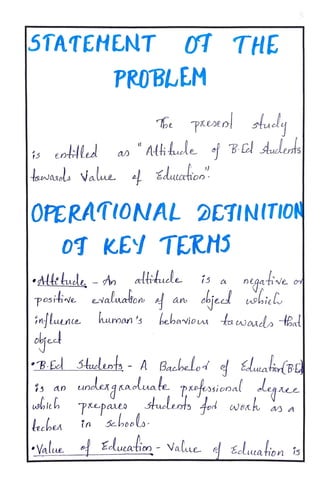 STATEMENT OF THE
PROBLEM
The present study
is entitled as "Attitude of B.Ed Students
towards Value of Education".
OPERATIONAL DEFINITION
OF KEY TERMS
• Attitude - An attitude is a negative or
positive evaluation of an object which
influence human's behaviour towards that
object
• B.Ed Students - A Bachelor of Education (B.Ed)
is an undergraduate professional degree
which prepares students for work as a
techer in schools.
• Value of Education - Value of Education is